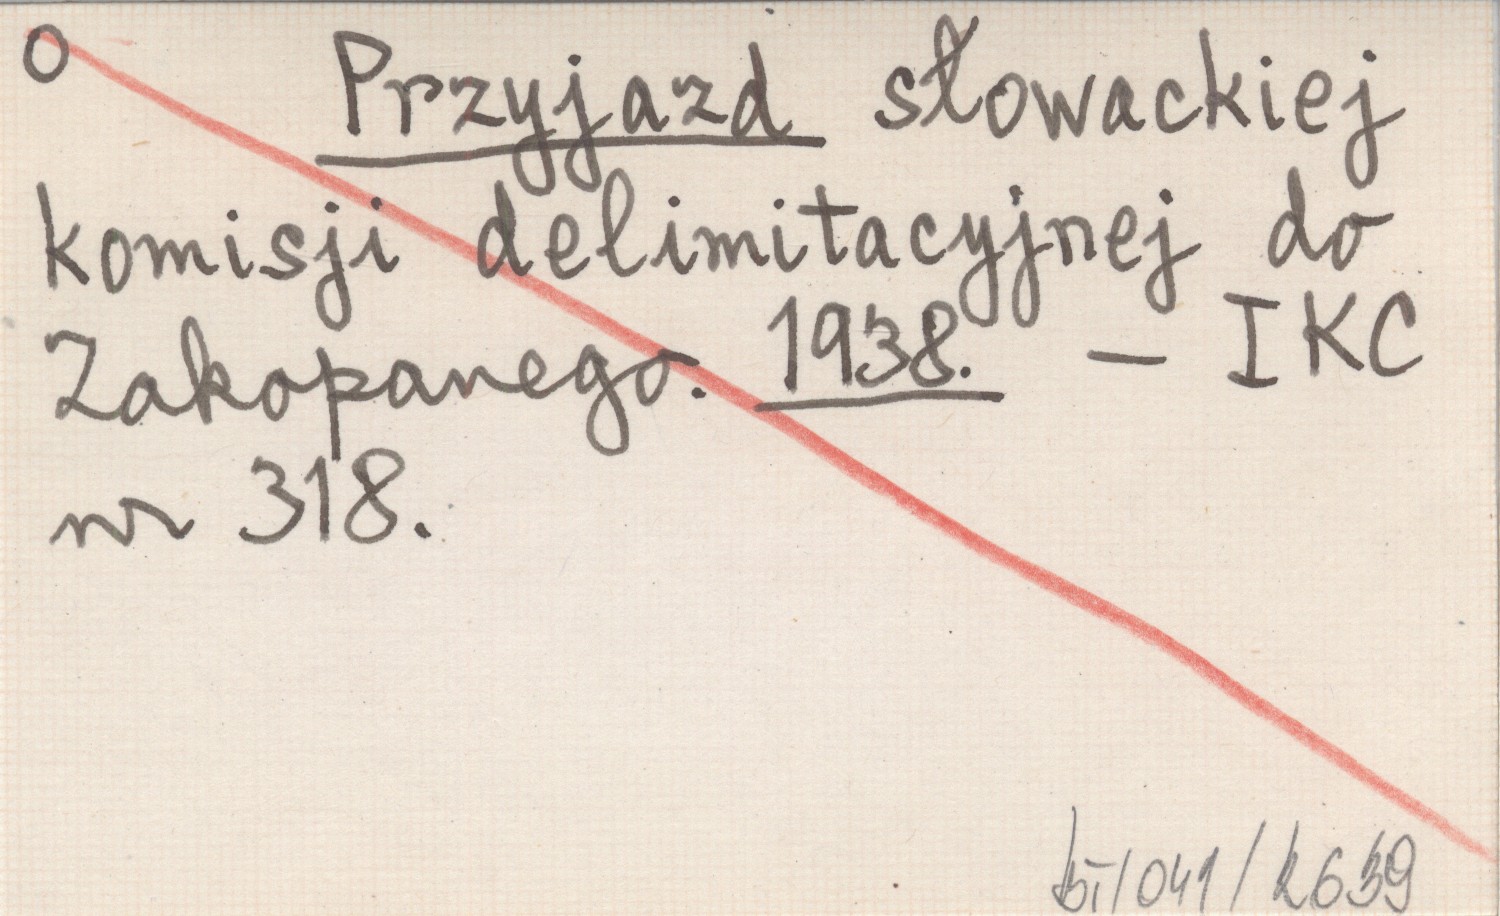 O Przyjazd słowackiej
komisji delimitacyjnej do
Zakopanego. 1938. — IKC
nr 318.
/041/k639